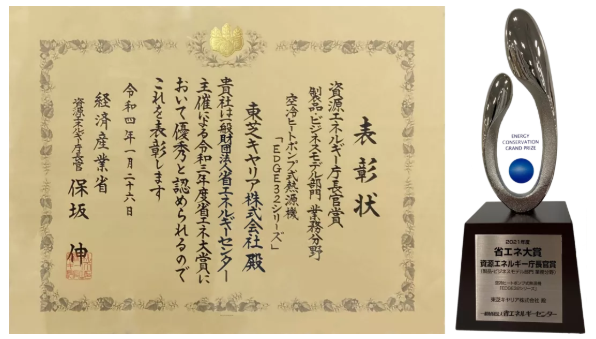 表彰状
資源エネルギー庁長官賞
製品・ビジネスモデル部門 業務分野
空冷ヒートポンプ式熱源機
「EDGE32シリーズ」
東芝キヤリア株式会社 殿
貴社は一般財団法人省エネルギーセンター
主催による令和三年度省エネ大賞に
おいて優秀と認められるので
これを表彰します
令和四年一月二十六日
経済産業省
資源エネルギー庁長官 保坂 伸
ENERGY
CONSERVATION
GRAND PRIZE
2021年度
省エネ大賞
資源エネルギー庁長官賞
(製品・ビジネスモデル部門 業務分野)
空冷ヒートポンプ式熱源機
「EDGE32シリーズ」
東芝キヤリア株式会社 殿
一般財団法人 省エネルギーセンター